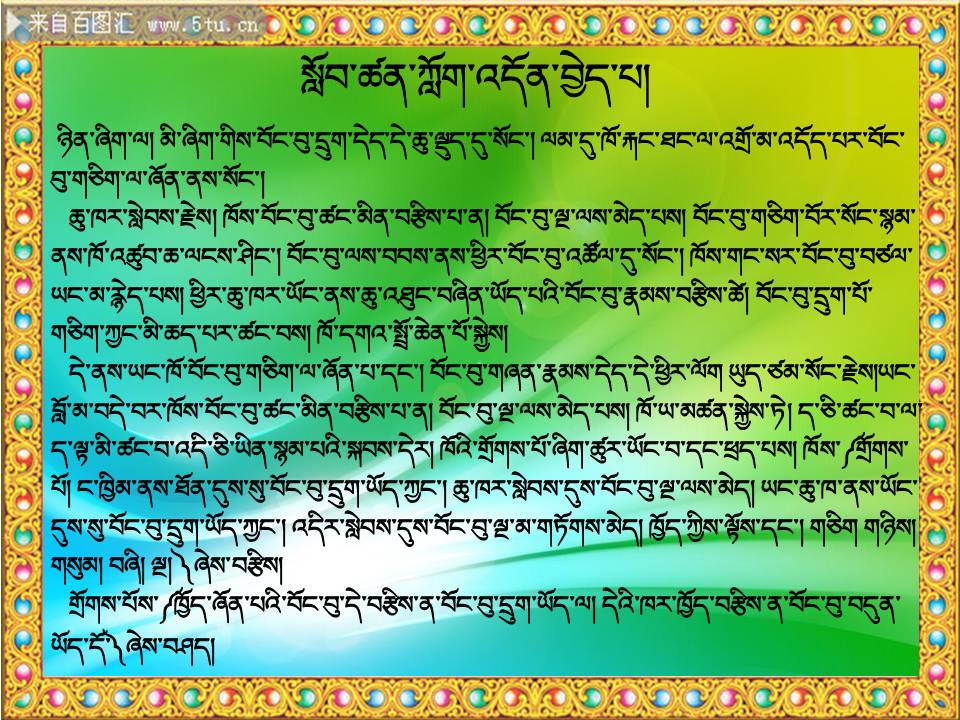 来自百图汇 www.5tu.cn
སློབ་ཚན་ཀློག་འདོན་བྱེད་པ།
ཉིན་ཞིག་ལ། མི་ཞིག་གིས་བོང་བུ་དྲུག་དེད་དེ་ཆུ་ལྡུད་དུ་སོང་། ལམ་དུ་ཁོ་རྐང་ཐང་ལ་འགྲོ་མ་འདོད་པར་བོང་
བུ་གཅིག་ལ་ཞོན་ནས་སོང་།
ཆུ་ཁར་སླེབས་རྗེས། ཁོས་བོང་བུ་ཚང་མིན་བརྩིས་པ་ན། བོང་བུ་ལྔ་ལས་མེད་པས། བོང་བུ་གཅིག་བོར་སོང་སྙམ་
ནས་ཁོ་འཚུབ་ཆ་ལངས་ཤིང་། བོང་བུ་ལས་བབས་ནས་ཕྱིར་བོང་བུ་འཚོལ་དུ་སོང་། ཁོས་གང་སར་བོང་བུ་བཙལ་
ཡང་མ་རྙེད་པས། ཕྱིར་ཆུ་ཁར་ཡོང་ནས་ཆུ་འཐུང་བཞིན་ཡོད་པའི་བོང་བུ་རྣམས་བརྩིས་ཚེ། བོང་བུ་དྲུག་པོ་
གཅིག་ཀྱང་མི་ཆད་པར་ཚང་བས། ཁོ་དགའ་སྤྲོ་ཆེན་པོ་སྐྱེས།
དེ་ནས་ཡང་ཁོ་བོང་བུ་གཅིག་ལ་ཞོན་པ་དང་། བོང་བུ་གཞན་རྣམས་དེད་དེ་ཕྱིར་ལོག ཡུད་ཙམ་སོང་རྗེས།ཡང་
བློ་མ་བདེ་བར་ཁོས་བོང་བུ་ཚང་མིན་བརྩིས་པ་ན། བོང་བུ་ལྔ་ལས་མེད་པས། ཁོ་ཡ་མཚན་སྐྱེས་ཏེ། ད་ཅི་ཚང་བ་ལ་
ད་ལྟ་མི་ཚང་བ་འདི་ཅི་ཡིན་སྙམ་པའི་སྐབས་དེར། ཁོའི་གྲོགས་པོ་ཞིག་ཚུར་ཡོང་བ་དང་ཕྲད་པས། ཁོས་༼གྲོགས་
པོ། ང་ཁྱིམ་ནས་ཐོན་དུས་སུ་བོང་བུ་དྲུག་ཡོད་ཀྱང་། ཆུ་ཁར་སླེབས་དུས་བོང་བུ་ལྔ་ལས་མེད། ཡང་ཆུ་ཁ་ནས་ཡོང་
དུས་སུ་བོང་བུ་དྲུག་ཡོད་ཀྱང་། འདིར་སླེབས་དུས་བོང་བུ་ལྔ་མ་གཏོགས་མེད། ཁྱོད་ཀྱིས་ལྟོས་དང་། གཅིག གཉིས།
གསུམ། བཞི། ལྔ།༽ཞེས་བརྩིས།
གྲོགས་པོས་༼ཁྱོད་ཞོན་པའི་བོང་བུ་དེ་བརྩིས་ན་བོང་བུ་དྲུག་ཡོད་ལ། དེའི་ཁར་ཁྱོད་བརྩིས་ན་བོང་བུ་བདུན་
ཡོད་དོ༽ཞེས་བཤད།